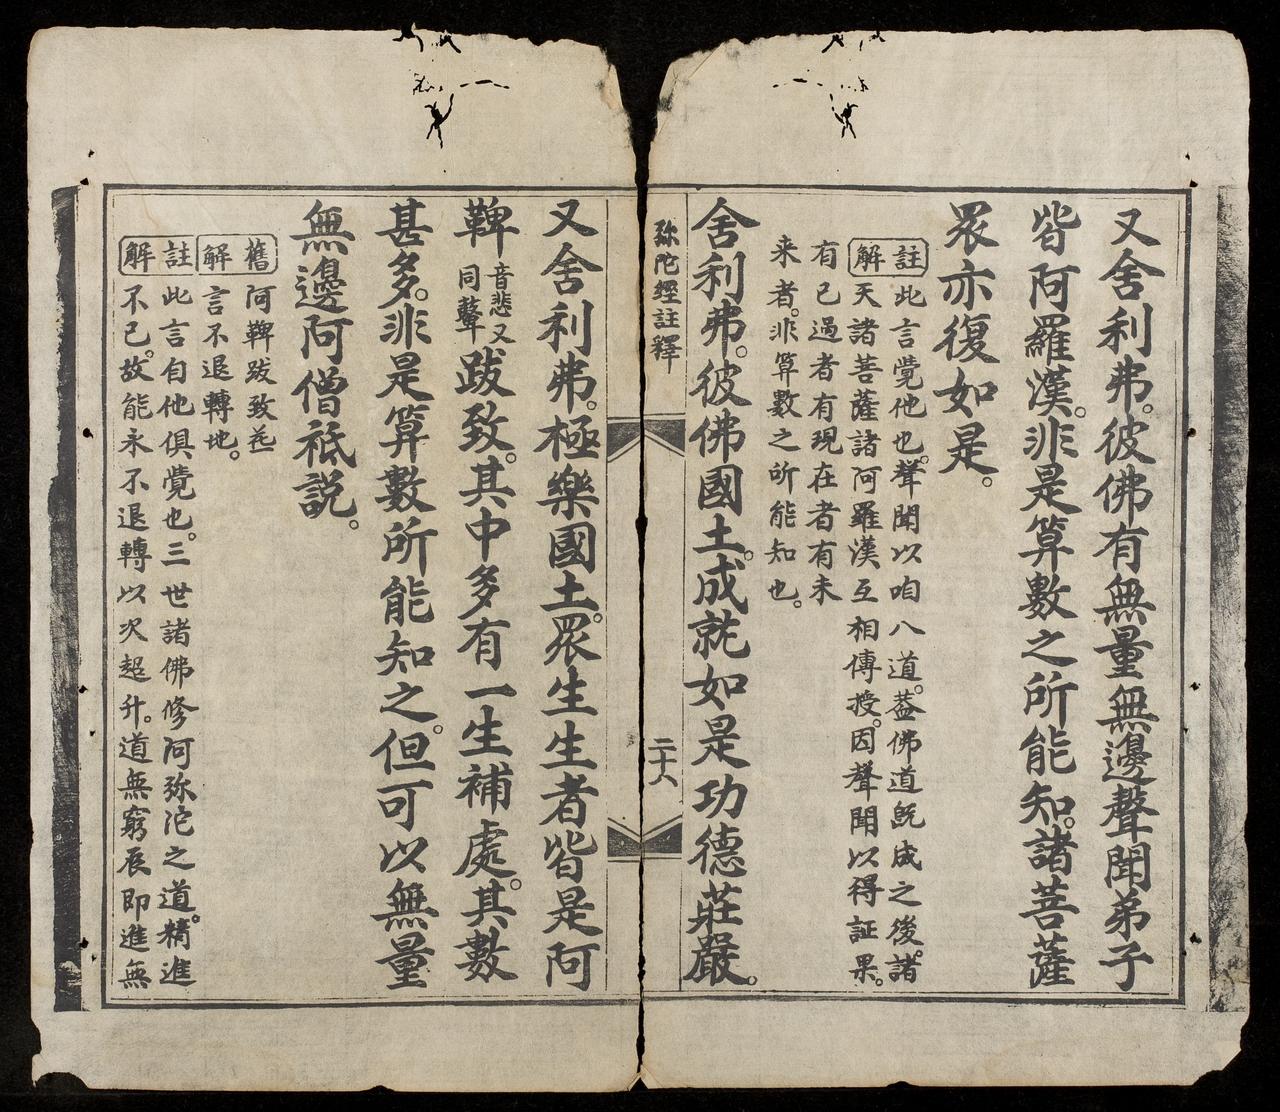 又舍利弗。彼佛有無量無邊聲聞弟子
皆阿羅漢。非是算數之所能知。諸菩薩
眾亦復如是。
註解
此言覺他也。聲聞以咱八道。葢佛道既成之後。諸
天諸菩薩諸阿羅漢互相傳授。因聲聞以得証果。
有已過者有現在者有未
来者。非算數之所能知也。
舍利弗。彼佛國土。成就如是功德莊嚴。
弥陀經註釋
二十八
又舍利弗。極樂國土。眾生生者皆是阿
鞞音悲又同鼙跋致。其中多有一生補處。其數
甚多。非是算數所能知之。但可以無量
無邊阿僧祇說。
舊解
阿鞞跋致葢
言不退轉地。
註解
此言自他俱覺也。三世諸佛修阿弥陀之道。精進
不已。故能永不退轉以次超升。道無窮辰即進無